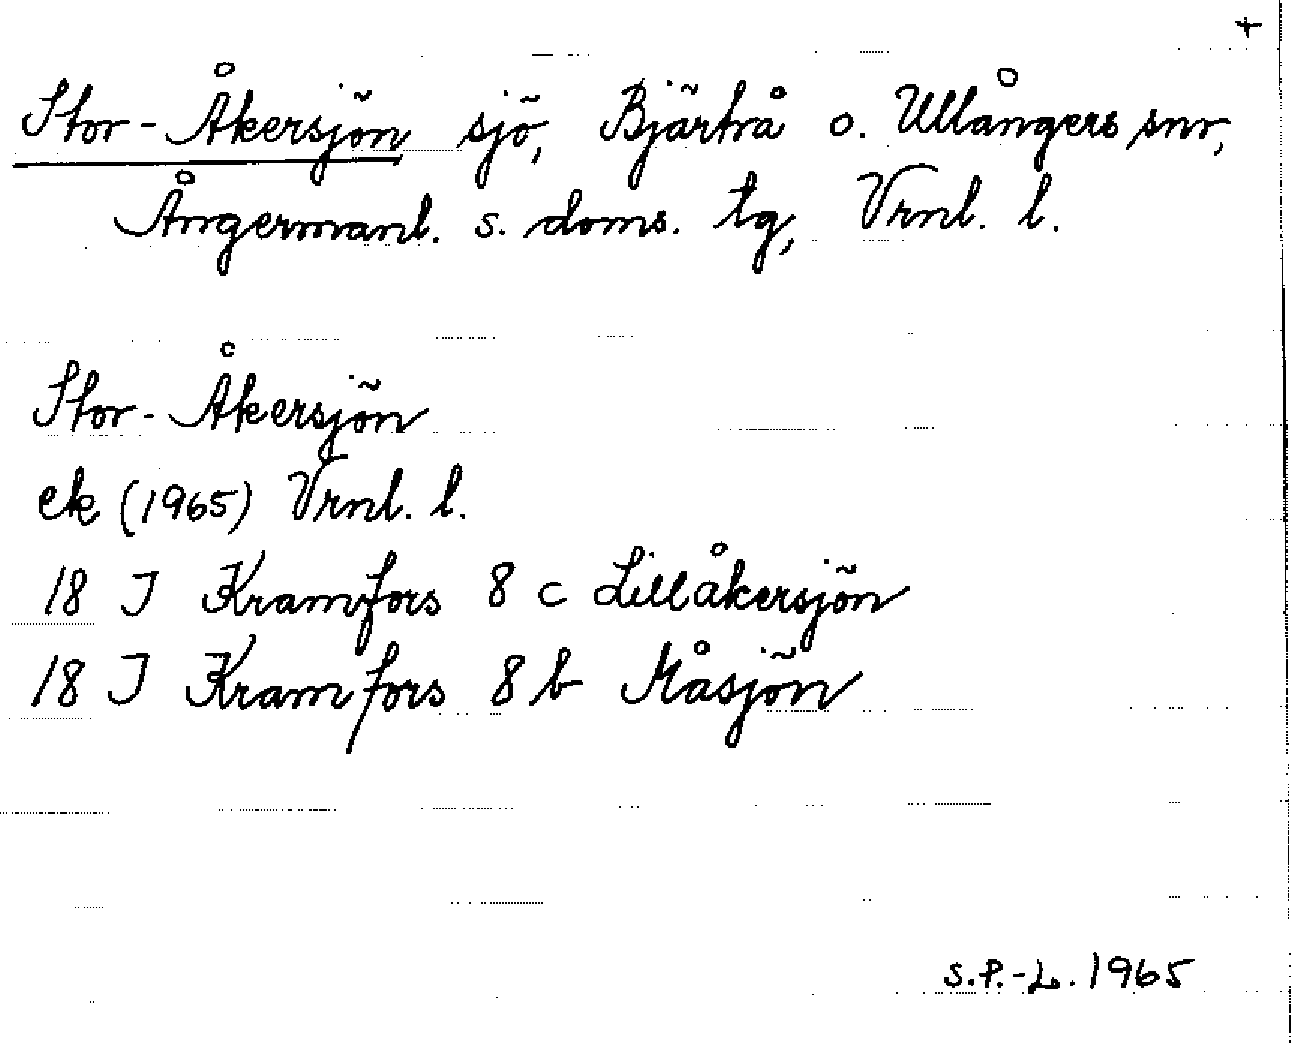 +
Stor-Åkersjön sjö, Bjärtrå o. Ullångers snr,
Ångermanl. s. doms. tg, Vrnl. l.
Stor-Åkersjön
ek (1965) Vrnl. l.
18 J Kramfors 8 c Lillåkersjön
18 J Kramfors 8 b Måsjön
S.P.-L. 1965